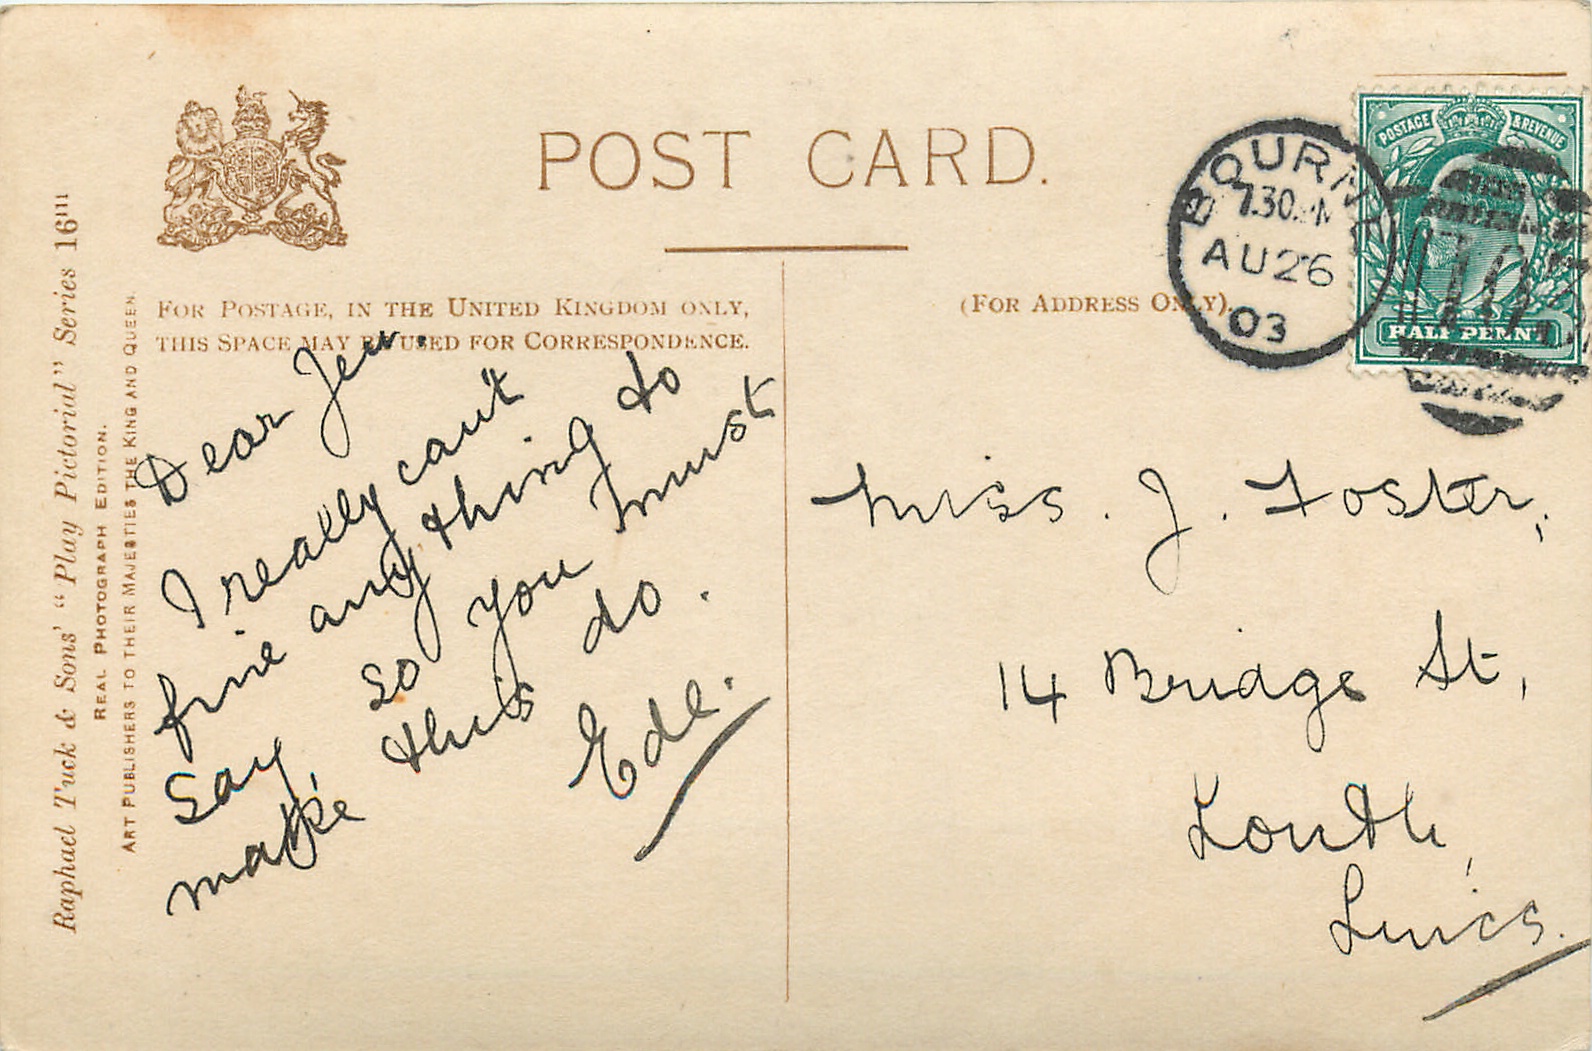 POST CARD.
FOR POSTAGE, IN THE UNITED KINGDOM ONLY,
THIS SPACE MAY BE USED FOR CORRESPONDENCE.
(FOR ADDRESS ONLY).
Raphael Tuck & Sons' "Play Pictorial" Series 16III
REAL PHOTOGRAPH EDITION.
ART PUBLISHERS TO THEIR MAJESTIES THE KING AND QUEEN.
BOURNE
7.30PM
AU26
03
POSTAGE & REVENUE
HALF PENNY
Dear Jen.
I really can't
fine any thing to
say, so you must
make this do.
Ede.
Miss. J. Foster,
14 Bridge St,
Louth,
Lincs.